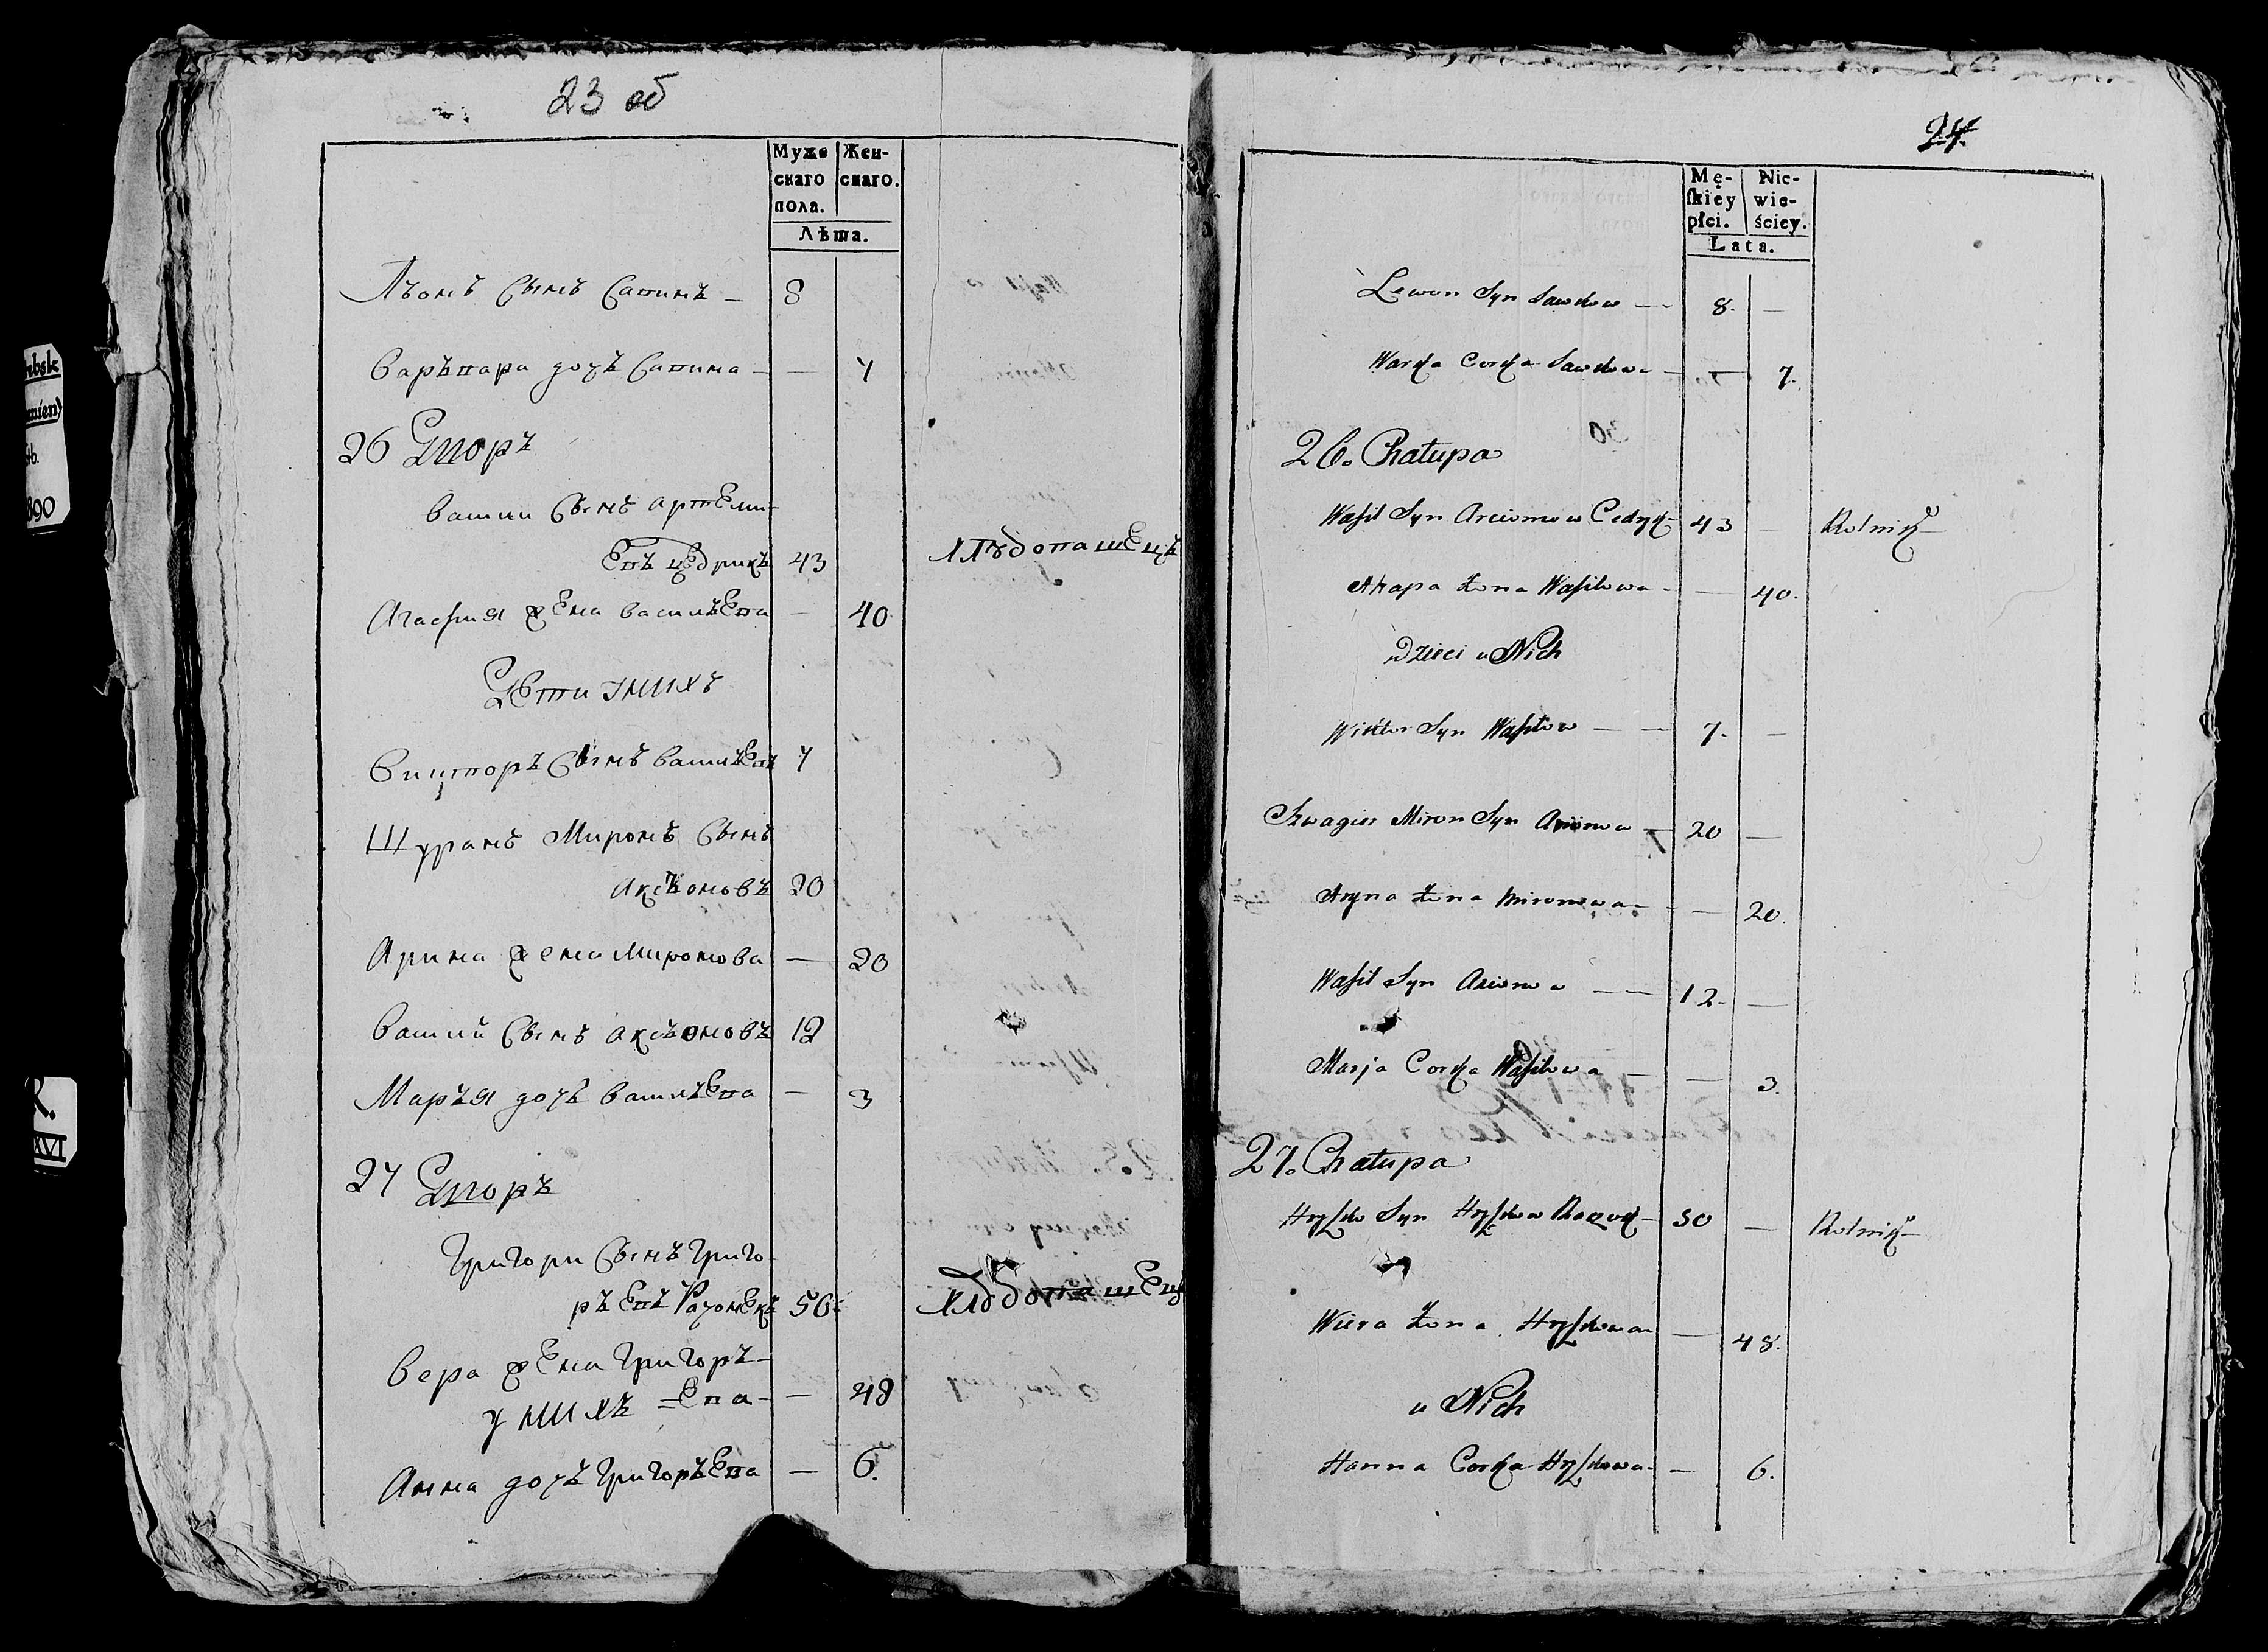 23 об
Муже Жен-
скаго скаго.
пола.
Лѣта.
Лъонъ Сынъ Савинъ — 8
Варъвара дочъ Савина — — 7
26 Двор ъ
Василий Сынъ Артеми-
евъ Цедрикъ 43 хлѣбопашецъ
Агафия жена Василъева — 40
Дети унихъ
Викторъ Сынъ Василъевъ 7
Шуринъ Миронъ Сынъ
Аксѣоновъ 20
Арина жена Миронова — 20
Василий Сынъ Аксъоновъ 12
Маръя дочъ Василъева — 3
27 Дворъ
Григори Сынъ Григо-
ръевъ 50 хлѣбопашецъ
Вера жена Григоръ-
у нихъ =ева — — 48
Анна дочъ Григоръева — 6.
24
Mę- Nie-
skiey wie-
płci. ściey.
Lata.
Lewon Syn Sawkow — 8. —
Warka Corka Sawkowa — — 7.
26. Chałupa
Wasil Syn Arciomow Cedryk 43 — Rolnik
Ahapa żona Wasilowa — 40.
Dzieci u Nich
Wiktor Syn Wasilow — — 7. —
Szwagier Miron Syn — 20 —
Aryna żona Mironowa — — 20.
Wasil Syn — — 12. —
Marja Corka Wasilowa — — 3.
27. Chałupa
Hryszko Syn Hryszkow 50 — Rolnik
Wiera żona Hryszkowa — 48.
u Nich
Hanna Corka Hryszkowa — 6.